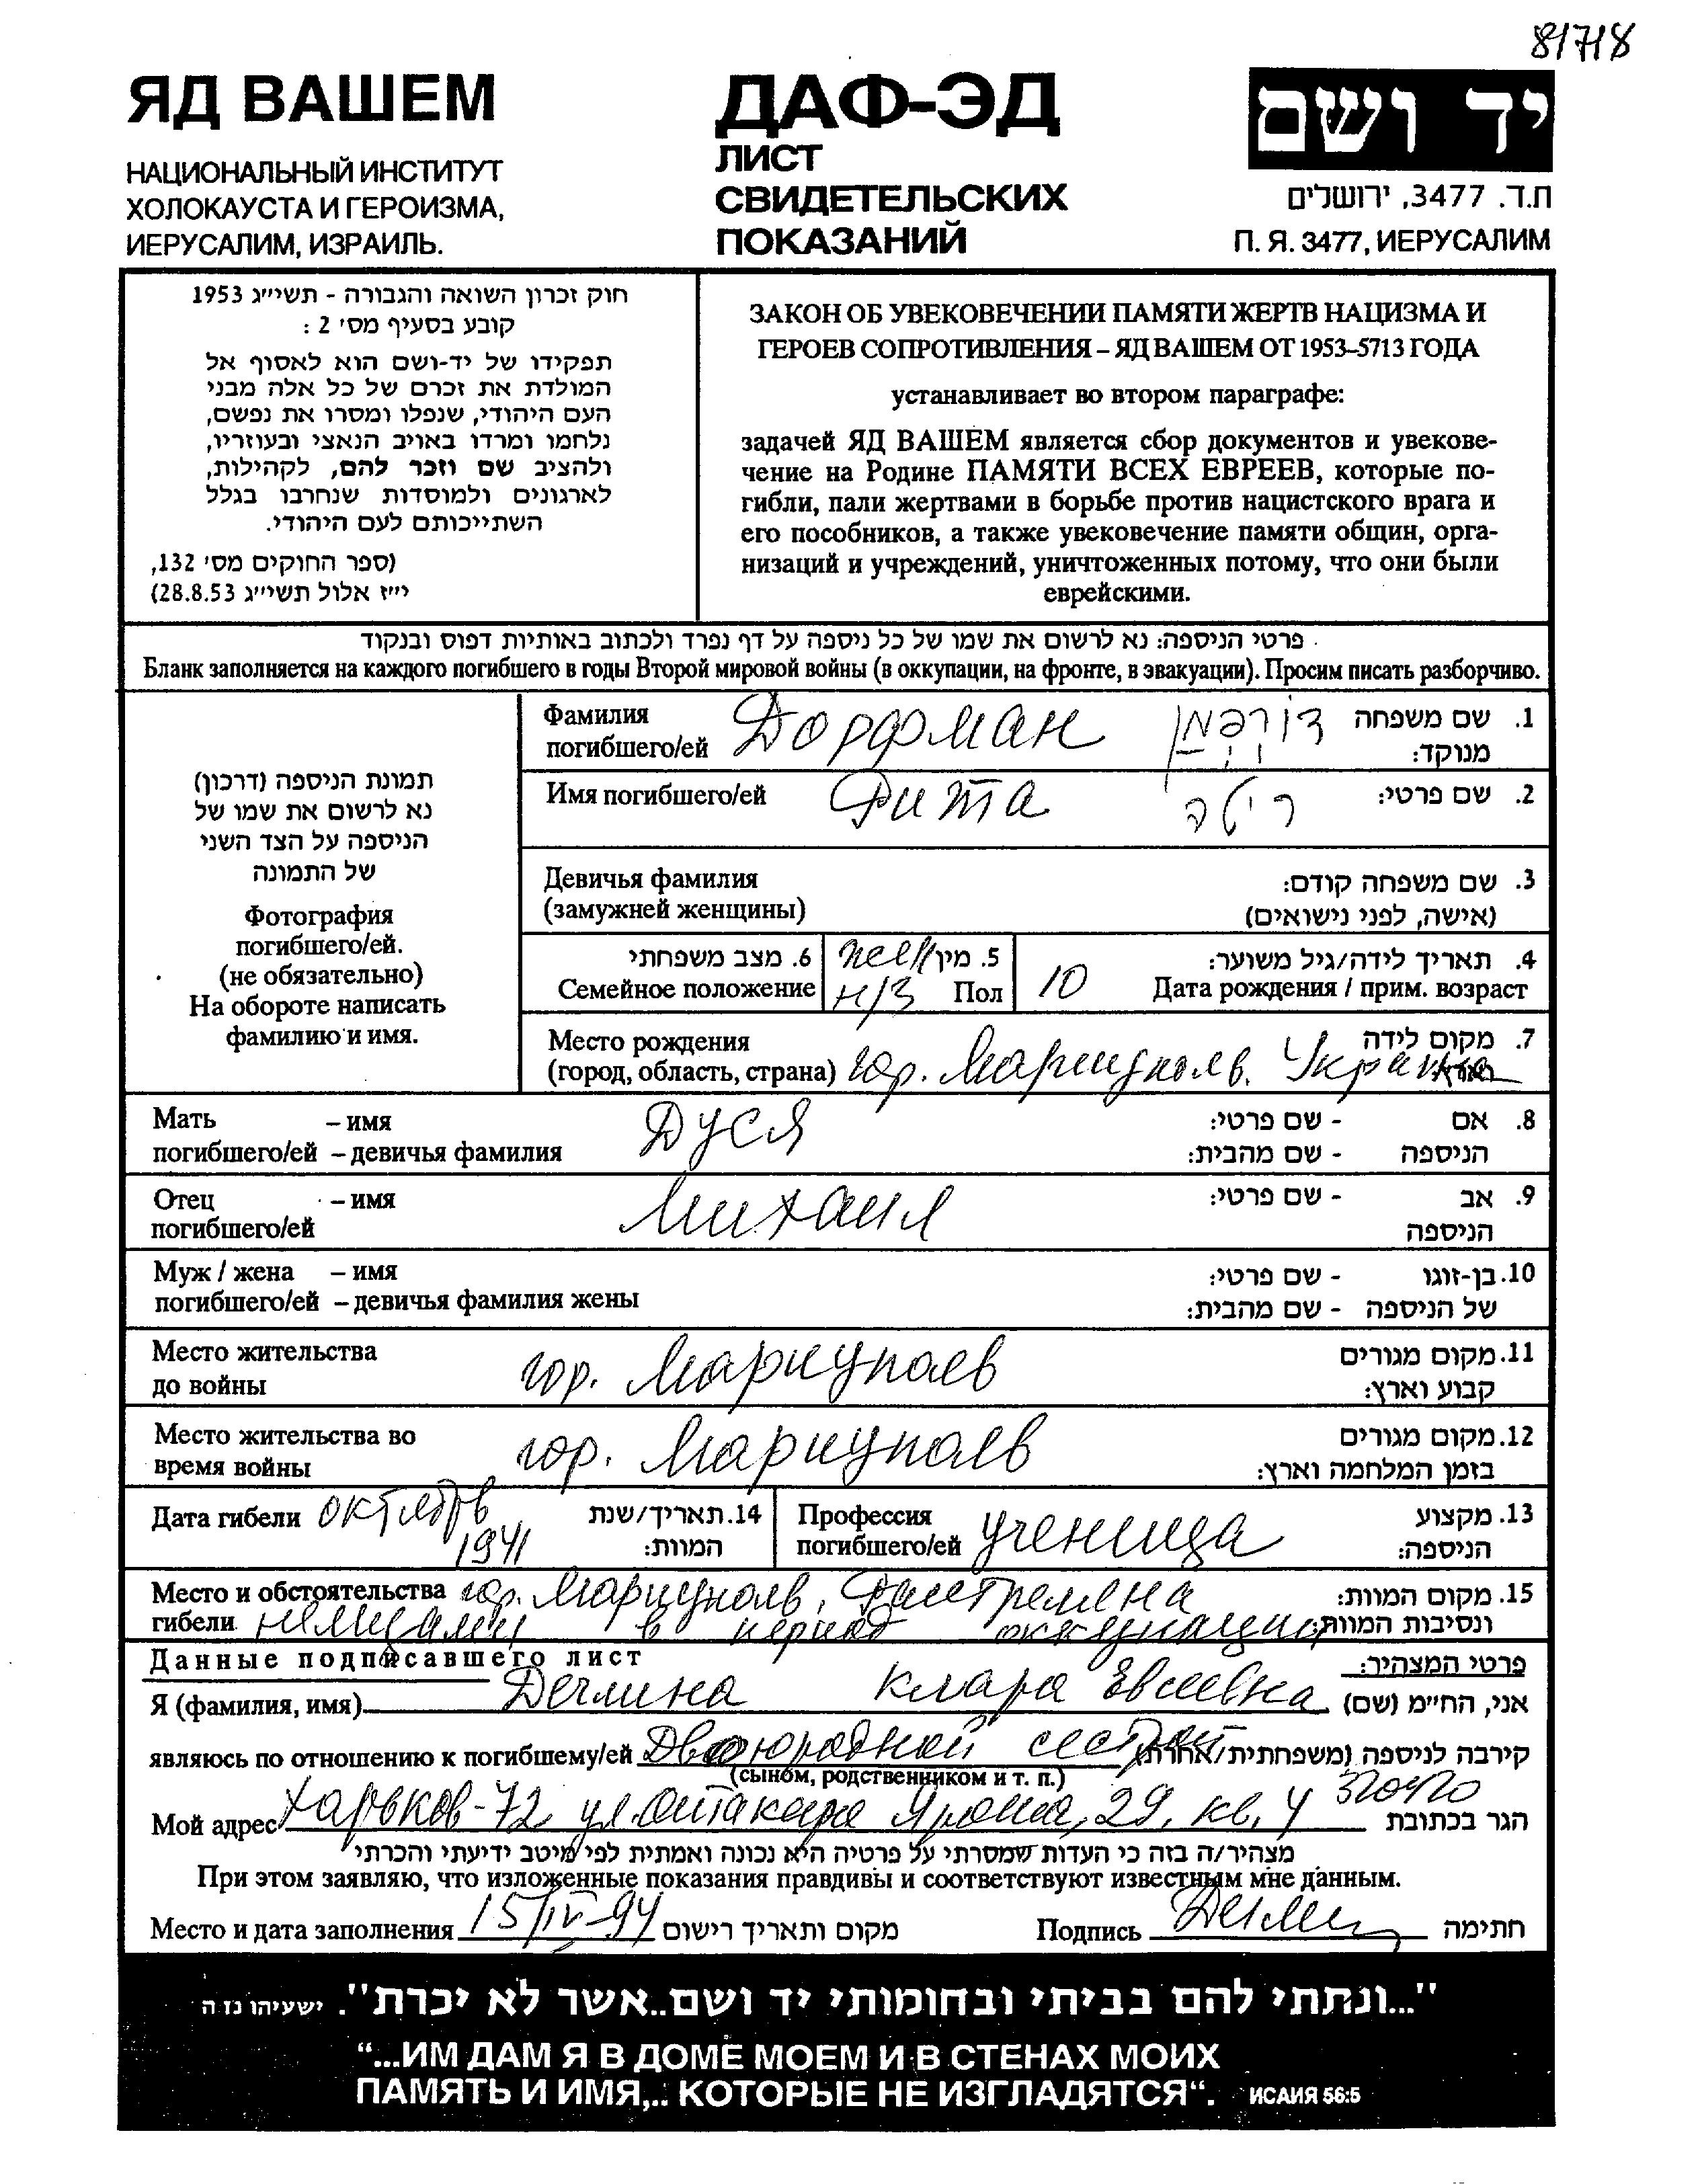 81718
ЯД ВАШЕМ
НАЦИОНАЛЬНЫЙ ИНСТИТУТ
ХОЛОКАУСТА И ГЕРОИЗМА,
ИЕРУСАЛИМ, ИЗРАИЛЬ.
ДАФ-ЭД
ЛИСТ
СВИДЕТЕЛЬСКИХ
ПОКАЗАНИЙ
יד ושם
ת.ד. 3477, ירושלים
П. Я. 3477, ИЕРУСАЛИМ
חוק זכרון השואה והגבורה - תשי״ג 1953
קובע בסעיף מס׳ 2 :
תפקידו של יד-ושם הוא לאסוף אל
המולדת את זכרם של כל אלה מבני
העם היהודי, שנפלו ומסרו את נפשם,
נלחמו ומרדו באויב הנאצי ובעוזריו,
ולהציב שם וזכר להם, לקהילות,
לארגונים ולמוסדות שנחרבו בגלל
השתייכותם לעם היהודי.
(ספר החוקים מס׳ 132,
י״ז אלול תשי״ג 28.8.53)
ЗАКОН ОБ УВЕКОВЕЧЕНИИ ПАМЯТИ ЖЕРТВ НАЦИЗМА И
ГЕРОЕВ СОПРОТИВЛЕНИЯ – ЯД ВАШЕМ ОТ 1953–5713 ГОДА
устанавливает во втором параграфе:
задачей ЯД ВАШЕМ является сбор документов и увекове-
чение на Родине ПАМЯТИ ВСЕХ ЕВРЕЕВ, которые по-
гибли, пали жертвами в борьбе против нацистского врага и
его пособников, а также увековечение памяти общин, орга-
низаций и учреждений, уничтоженных потому, что они были
еврейскими.
פרטי הניספה: נא לרשום את שמו של כל ניספה על דף נפרד ולכתוב באותיות דפוס ובנקוד
Бланк заполняется на каждого погибшего в годы Второй мировой войны (в оккупации, на фронте, в эвакуации). Просим писать разборчиво.
תמונת הניספה (דרכון)
נא לרשום את שמו של
הניספה על הצד השני
של התמונה
Фотография
погибшего/ей.
(не обязательно)
На обороте написать
фамилию и имя.
Фамилия Дорфман דורפמן 1. שם משפחה
погибшего/ей מנוקד:
Имя погибшего/ей Рита ריטה 2. שם פרטי:
Девичья фамилия 3. שם משפחה קודם:
(замужней женщины) (אישה, לפני נישואים)
6. מצב משפחתי 5. מין жен 4. תאריך לידה/גיל משוער:
Семейное положение н/з Пол 10 Дата рождения / прим. возраст
Место рождения 7. מקום לידה
(город, область, страна) гор. Мариуполь, Украина וארץ:
Мать – имя Дуся 8. אם - שם פרטי:
погибшего/ей – девичья фамилия הניספה - שם מהבית:
Отец – имя Михаил 9. אב - שם פרטי:
погибшего/ей הניספה
Муж / жена – имя 10. בן-זוגו - שם פרטי:
погибшего/ей – девичья фамилия жены של הניספה - שם מהבית:
Место жительства гор. Мариуполь 11. מקום מגורים
до войны קבוע וארץ:
Место жительства во гор. Мариуполь 12. מקום מגורים
время войны בזמן המלחמה וארץ:
Дата гибели октябрь 14. תאריך/שנת
1941 המוות:
Профессия ученица 13. מקצוע
погибшего/ей הניספה:
Место и обстоятельства гор. Мариуполь, Расстреляна 15. מקום המוות:
гибели немцами в период оккупации ונסיבות המוות:
Данные подписавшего лист פרטי המצהיר:
Я (фамилия, имя) Клара Евсеевна אני, הח״מ (שם)
являюсь по отношению к погибшему/ей Двоюродной сестрой קירבה לניספה (משפחתית/אחרת)
(сыном, родственником и т. п.)
Мой адрес Харьков-72 ул. Отакара Яроша, 29, кв. 4 הגר בכתובת
מצהיר/ה בזה כי העדות שמסרתי על פרטיה היא נכונה ואמתית לפי מיטב ידיעתי והכרתי
При этом заявляю, что изложенные показания правдивы и соответствуют известным мне данным.
Место и дата заполнения 15/IV-94 מקום ותאריך רישום Подпись חתימה
"...ונתתי להם בביתי ובחומותי יד ושם..אשר לא יכרת". ישעיהו נז ה
“...ИМ ДАМ Я В ДОМЕ МОЕМ И В СТЕНАХ МОИХ
ПАМЯТЬ И ИМЯ,.. КОТОРЫЕ НЕ ИЗГЛАДЯТСЯ“. ИСАИЯ 56:5